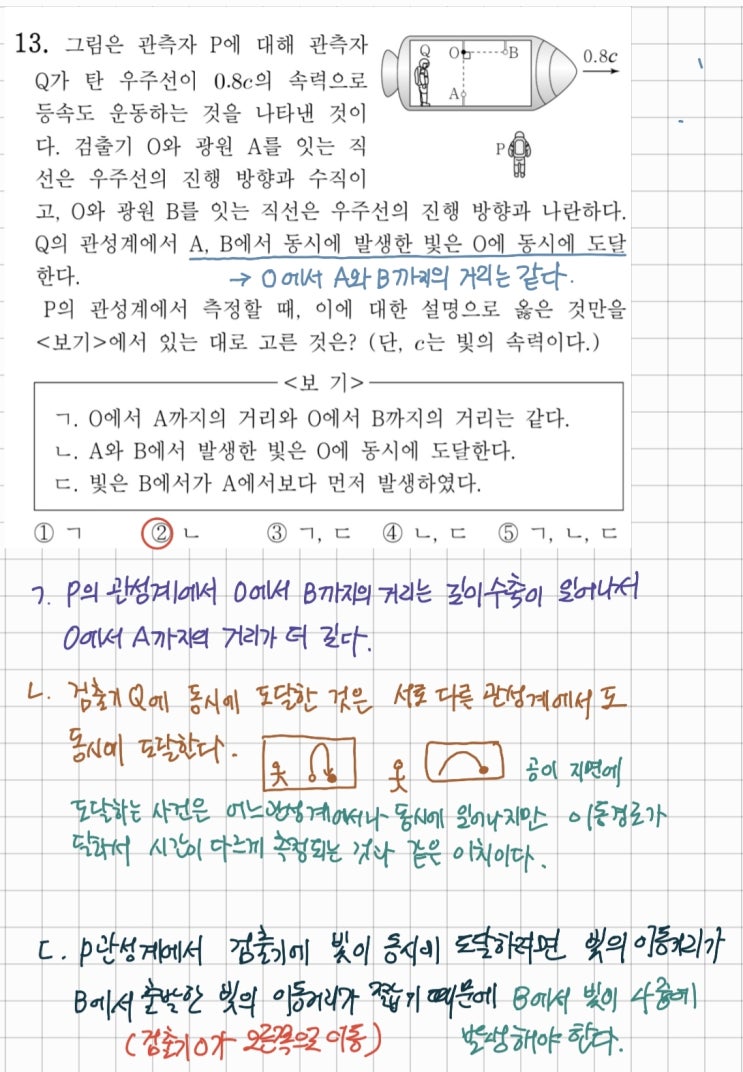 13. 그림은 관측자 P에 대해 관측자
Q가 탄 우주선이 0.8c의 속력으로
등속도 운동하는 것을 나타낸 것이
다. 검출기 O와 광원 A를 잇는 직
선은 우주선의 진행 방향과 수직이
고, O와 광원 B를 잇는 직선은 우주선의 진행 방향과 나란하다.
Q의 관성계에서 A, B에서 동시에 발생한 빛은 O에 동시에 도달
한다.
→ O에서 A와 B까지의 거리는 같다.
P의 관성계에서 측정할 때, 이에 대한 설명으로 옳은 것만을
<보기>에서 있는 대로 고른 것은? (단, c는 빛의 속력이다.)
Q
O
B
A
0.8c
P
<보 기>
ㄱ. O에서 A까지의 거리와 O에서 B까지의 거리는 같다.
ㄴ. A와 B에서 발생한 빛은 O에 동시에 도달한다.
ㄷ. 빛은 B에서가 A에서보다 먼저 발생하였다.
① ㄱ ② ㄴ ③ ㄱ, ㄷ ④ ㄴ, ㄷ ⑤ ㄱ, ㄴ, ㄷ
ㄱ. P의 관성계에서 O에서 B까지의 거리는 길이수축이 일어나서
O에서 A까지의 거리가 더 길다.
ㄴ. 검출기 Q에 동시에 도달한 것은 서로 다른 관성계에서도
동시에 도달한다.
공이 지면에
도달하는 사건은 어느관성계에서나 동시에 일어나지만 이동경로가
달라서 시간이 다르게 측정되는 것과 같은 이치이다.
ㄷ. P관성계에서 검출기에 빛이 동시에 도달하려면 빛의 이동거리가
B에서 출발한 빛의 이동거리가 짧기 때문에 B에서 빛이 나중에
(검출기O가 오른쪽으로 이동)
발생해야 한다.